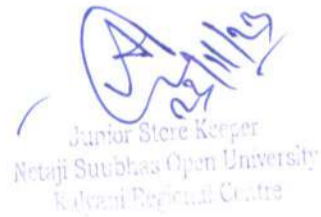 29/11/23
Junior Store Keeper
Netaji Subhas Open University
Kalyani Regional Centre